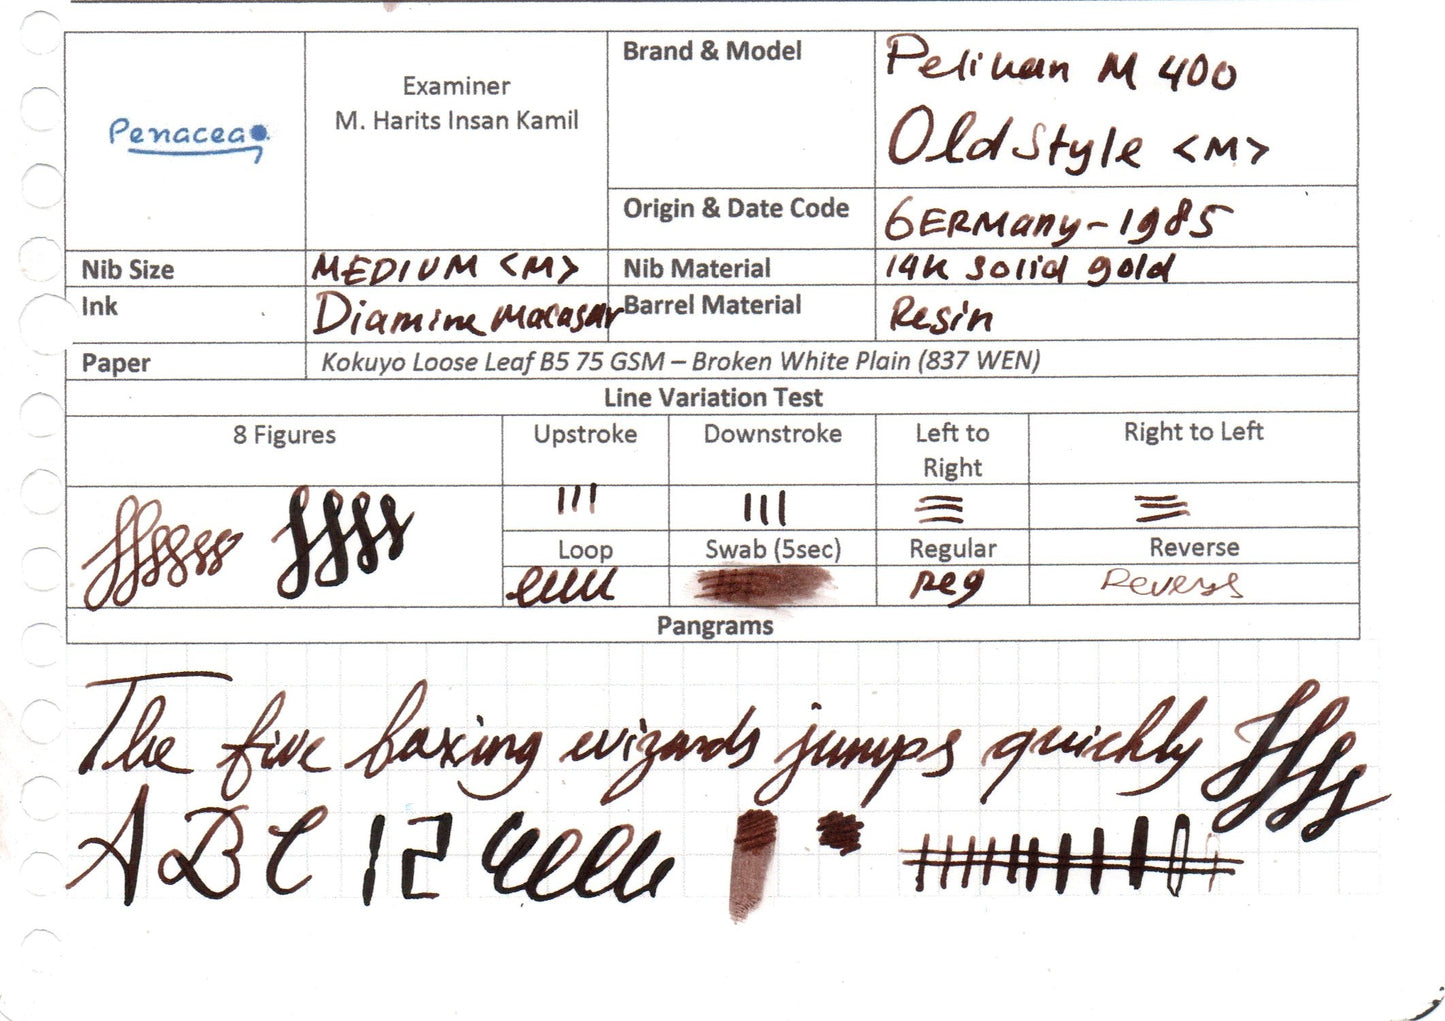 Penacea
Examiner
M. Harits Insan Kamil
Brand & Model
Pelikan M 400
Old Style <M>
Origin & Date Code
GERMany - 1985
Nib Size
MEDIUM <M>
Nib Material
14K solid gold
Ink
Diamine Macasar
Barrel Material
Resin
Paper
Kokuyo Loose Leaf B5 75 GSM – Broken White Plain (837 WEN)
Line Variation Test
8 Figures
Upstroke
Downstroke
Left to
Right
Right to Left
Loop
Swab (5sec)
Regular
Reverse
reg
Revers
Pangrams
The five boxing wizards jumps quickly
A B C 1 2